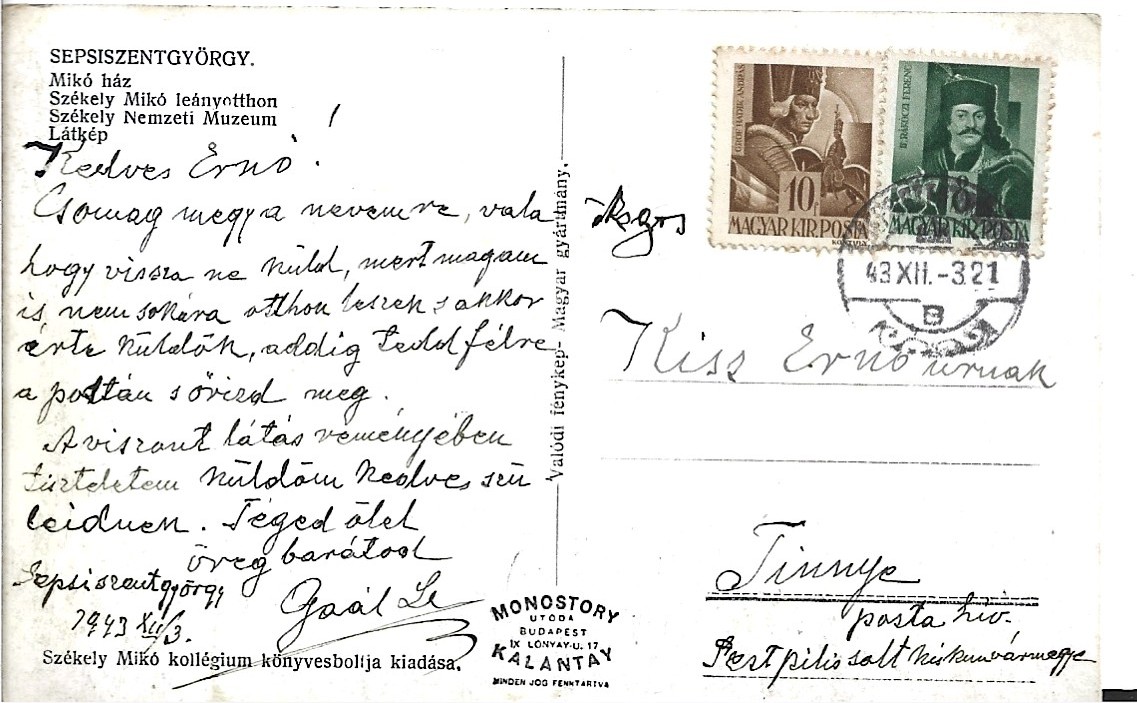 SEPSISZENTGYÖRGY.
Mikó ház
Székely Mikó leányotthon
Székely Nemzeti Muzeum
Látkép
Kedves Ernő!
Csomag megy a nevemre, vala
hogy vissza ne küld, mert magam
is nemsokára otthon leszek s akkor
érte küldök, addig tedd félre
a postán s őrizd meg.
A viszont látás reményében
tiszteletem küldöm kedves szü
leidnek. Téged ölel
öreg barátod
Gaál
Sepsiszentgyörgy
1943 XII/3.
Székely Mikó kollégium könyvesboltja kiadása.
Valódi fénykép- Magyar gyártmány.
MONOSTORY
UTÓDA
BUDAPEST
IX LÓNYAY-U. 17
KALANTAY
MINDEN JOG FENNTARTVA
GRÓF HADIK ANDRÁS
10f
MAGYAR KIR POSTA
II. RÁKÓCZI FERENC
8
MAGYAR KIR POSTA
43 XII.-3.21
B
Kiss Ernő úrnak
Tinnye
posta hiv.
Pest pilis solt kiskunvármegye